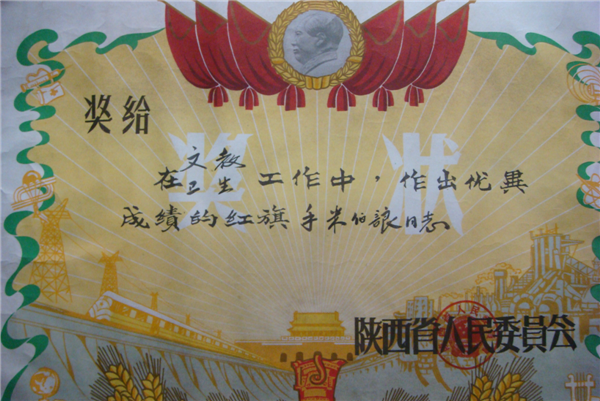 奖给
奖状
文教
在卫生工作中，作出优異
成績的红旗手米伯讓同志
陕西省人民委員会